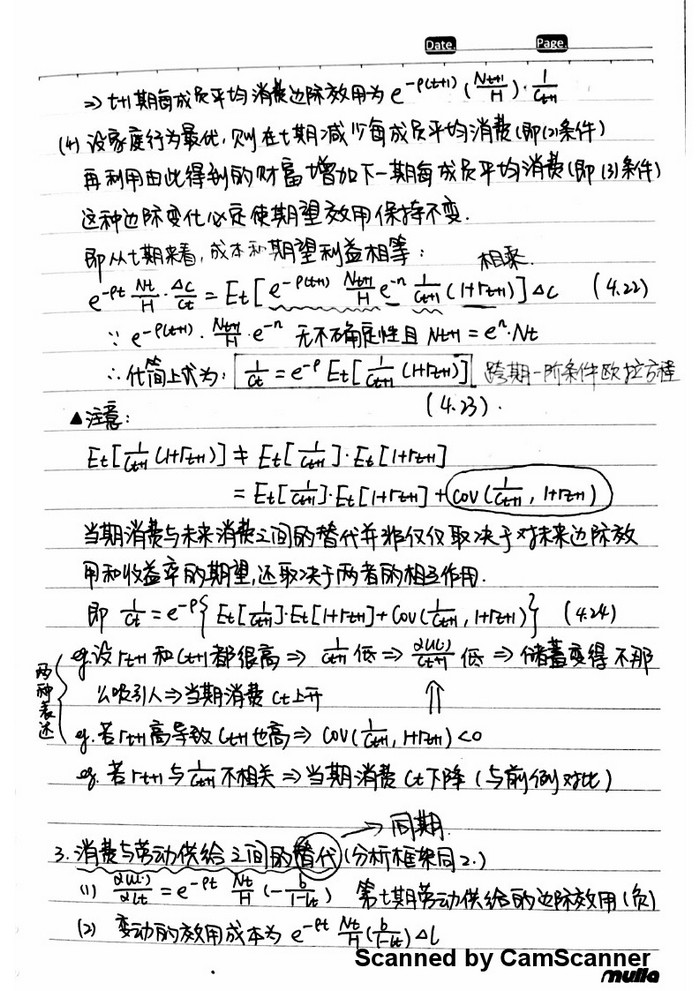 Date. Page.
⇒ t+1期每成员平均消费边际效用为 e^{-ρ(t+1)} (N_{t+1}/H)·1/C_{t+1}
(4) 设家庭行为最优,则在t期减少每成员平均消费(即(2)条件)
再利用由此得到的财富增加下一期每成员平均消费(即(3)条件)
这种边际变化必定使期望效用保持不变.
即从t期来看,成本和期望利益相等: 相乘.
e^{-ρt} N_t/H · ΔC/C_t = E_t[e^{-ρ(t+1)} N_{t+1}/H e^{-n} 1/C_{t+1} (1+r_{t+1})]ΔC (4.22)
∵ e^{-ρ(t+1)} · N_{t+1}/H · e^{-n} 无不确定性且 N_{t+1} = e^n·N_t
∴ 化简上式为: 1/C_t = e^{-ρ} E_t[1/C_{t+1} (1+r_{t+1})] 跨期一阶条件欧拉方程
(4.23).
▲注意:
E_t[1/C_{t+1} (1+r_{t+1})] ≠ E_t[1/C_{t+1}]·E_t[1+r_{t+1}]
= E_t[1/C_{t+1}]·E_t[1+r_{t+1}] + Cov(1/C_{t+1}, 1+r_{t+1})
当期消费与未来消费之间的替代并非仅仅取决于对未来边际效
用和收益率的期望,还取决于两者的相互作用.
即 1/C_t = e^{-ρ}{E_t[1/C_{t+1}]·E_t[1+r_{t+1}] + Cov(1/C_{t+1}, 1+r_{t+1})} (4.24)
两种表述
eg.设 r_{t+1} 和 C_{t+1} 都很高 ⇒ 1/C_{t+1} 低 ⇒ ∂U(·)/∂C_{t+1} 低 ⇒ 储蓄变得不那
么吸引人 ⇒ 当期消费 C_t 上升 ⇑
eg.若 r_{t+1} 高导致 C_{t+1} 也高 ⇒ Cov(1/C_{t+1}, 1+r_{t+1}) <0
eg.若 r_{t+1} 与 1/C_{t+1} 不相关 ⇒ 当期消费 C_t 下降 (与前例对比)
→ 同期.
3.消费与劳动供给之间的替代(分析框架同2.)
(1) ∂U(·)/∂l_t = e^{-ρt} N_t/H (-b/(1-l_t)) 第t期劳动供给的边际效用(负)
(2) 变动的效用成本为 e^{-ρt} N_t/H (b/(1-l_t)) Δl
Scanned by CamScanner
mulla